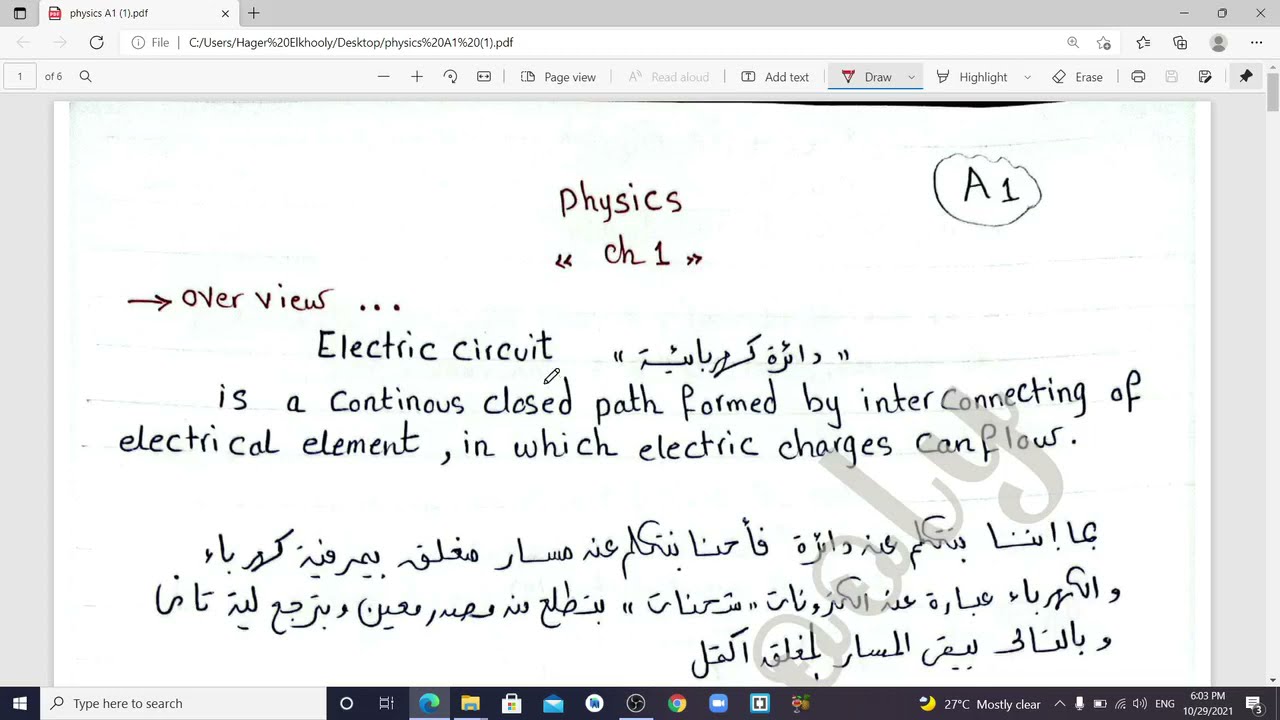 physics A1 (1).pdf
File C:/Users/Hager%20Elkhooly/Desktop/physics%20A1%20(1).pdf
1 of 6 Page view Read aloud Add text Draw Highlight Erase
A1
physics
« ch 1 »
→ over view ...
Electric circuit « دائرة كهربائية »
is a continous closed path formed by interconnecting of
electrical element, in which electric charges can flow.
بما إننا بنتكلم عن دائرة فأحنا بنتكلم عن مسار مغلق بيمر فية كهرباء
و الكهرباء عبارة عن الكترونات « شحنات » بتطلع من مصدر معين وبترجع لية تانى
و بالتالى يبقى المسار المغلق اكتمل
Type here to search
27°C Mostly clear ENG
6:03 PM
10/29/2021
3